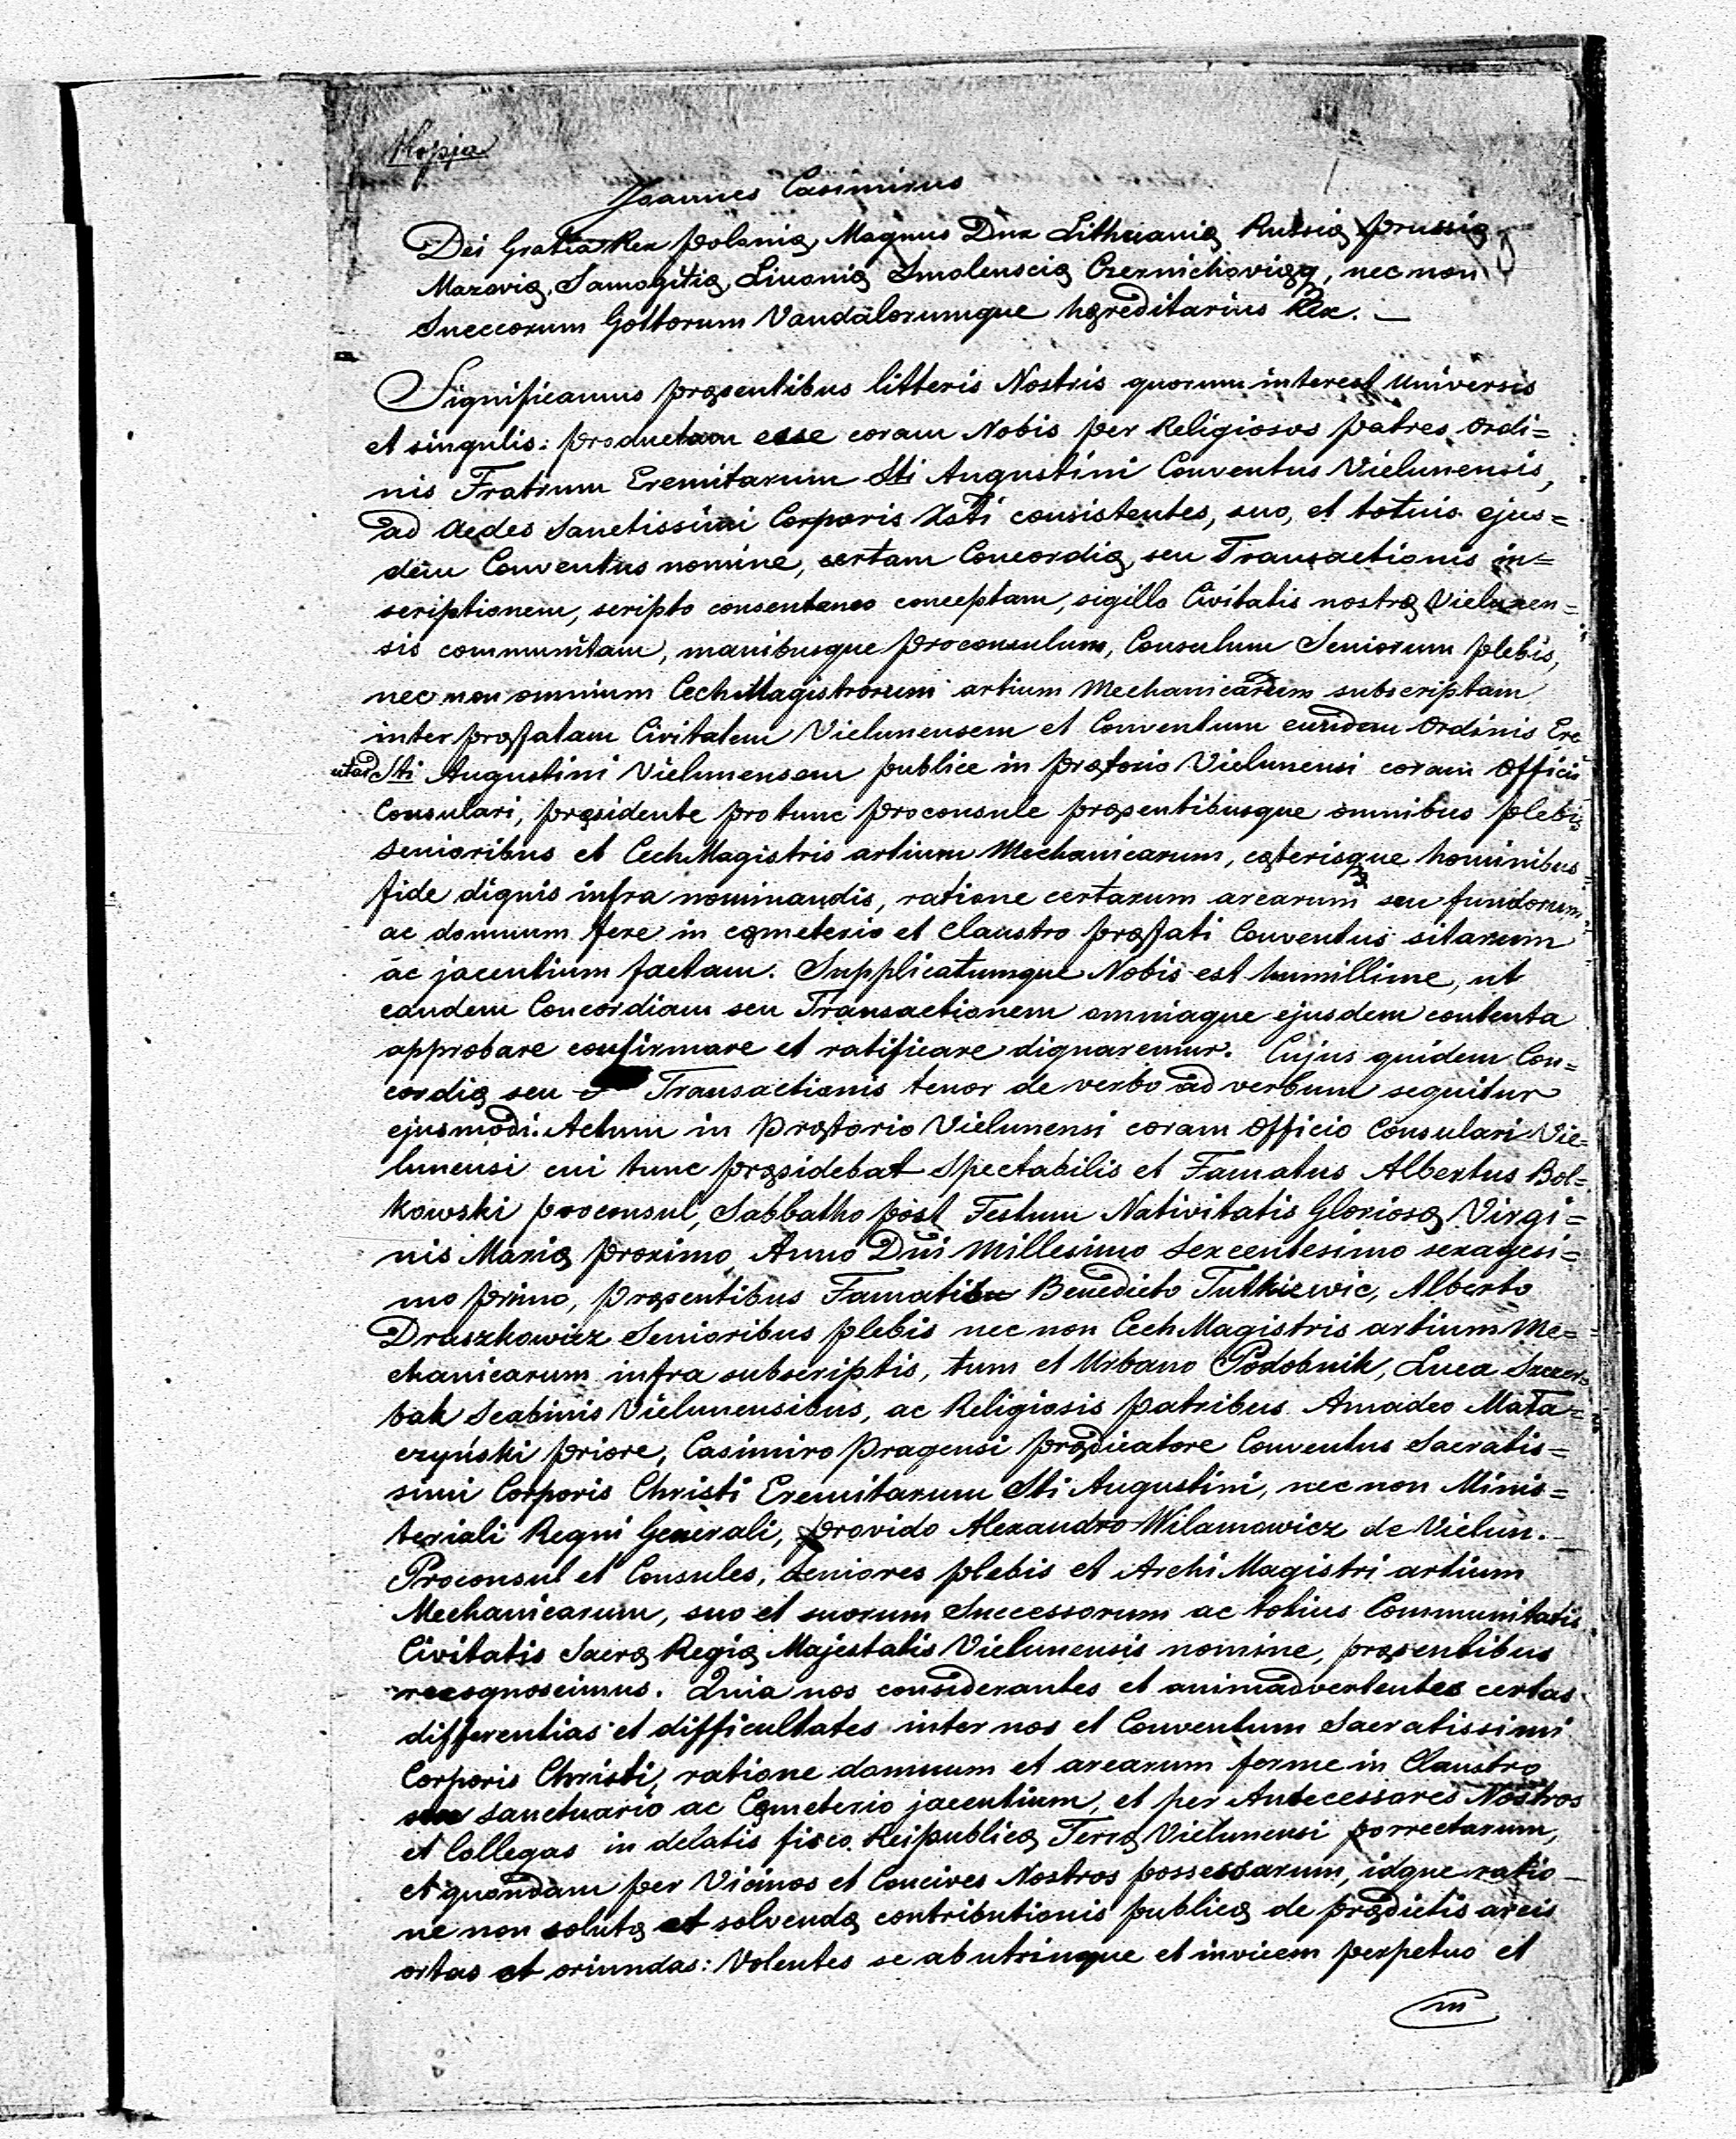 Kopja
Joannes Casimirus
Dei Gratia Rex polonię, Magnus Dux Lithuanię Russię prussię
Mazovię, Samogitię, Livonię Smolenscię Czernichovięq, nec non
Sueccorum Gottorum Vandalorumque hęreditarius Rex. —
Significamus pręsentibus litteris Nostris quorum interest universis
et singulis: productam esse coram Nobis per Religiosos patres Ordi=
nis Fratrum Eremitarum Sti Augustini Conventus Vielunensis,
ad Aedes Sanctissimi Corporis Xsti consistentes, suo, et totius ejus=
dem Conventus nomine, certam Concordię, seu Transactionis in=
scriptionem, scripto consentaneo conceptam, sigillo Civitatis nostrę Vielunen=
sis communitam, manibusque proconsulum, Consulum Seniorum plebis,
nec non omnium CechMagistrorum artium Mechanicarum subscriptam
inter pręfatam Civitatem Vielunensem et Conventum eundem Ordinis Ere
Sti Augustini Vielunensem publice in pręforio Vielunensi coram Officio
Consulari, pręsidente protunc proconsule pręsentibusque omnibus plebis
senioribus et CechMagistris artium Mechanicarum, cęterisque hominibus
fide dignis infra nominandis, ratione certarum arearum seu fundorum
ac domuum fere in cęmeterio et claustro pręfati Conventus sitarum
ac jacentium factam. Supplicatumque Nobis est humillime, ut
eandem Concordiam seu Transactionem omniaque ejusdem contenta
approbare confirmare et ratificare dignaremur. Cujus quidem Con=
cordię seu Transactionis tenor de verbo ad verbum sequitur
ejusmodi. Actum in Prętorio Vielunensi coram Officio Consulari Vie=
lunensi cui tunc pręsidebat Spectabilis et Famatus Albertus Bol=
kowski proconsul, Sabbatho post Festum Nativitatis Gloriosę Virgi=
nis Marię proximo, Anno Dni Millesimo Sexcentesimo sexagesi=
mo primo, pręsentibus Famatis Benedicto Tutkiewic, Alberto
Draszkowicz Senioribus plebis nec non CechMagistris artium Me=
chanicarum infra subscriptis, tum et Urbano Podobnik, Luca Szczer=
bak Scabinis Vielunensibus, ac Religiosis patribus Amadeo Mata=
czyński priore, Casimiro Pragensi prędicatore Conventus Sacratis=
simi Corporis Christi Eremitarum Sti Augustini, nec non Minis=
teriali Regni Generali, provido Alexandro Wilamowicz de Vielun.
Proconsul et Consules, Seniores plebis et ArchiMagistri artium
Mechanicarum, suo et suorum Successorum ac totius Communitatis
Civitatis Sacrę Regię Majestatis Vielunensis nomine, pręsentibus
recognoscimus. Quia nos considerantes et animadvertentes certas
differentias et difficultates inter nos et Conventum Sacratissimi
Corporis Christi, ratione domuum et arearum ferme in Claustro
seu sanctuario ac Cęmeterio jacentium, et per Antecessores Nostros
et Collegas in delatis fisco Reipublicę Terrę Vielunensi porrectarum,
et quondam per Vicinos et Concives Nostros possessarum, idque ratio
ne non solutę et solvendę contributionis publicę de prędictis areis
ortas et oriundas: Volentes se ab utrinque et invicem perpetuo et
in